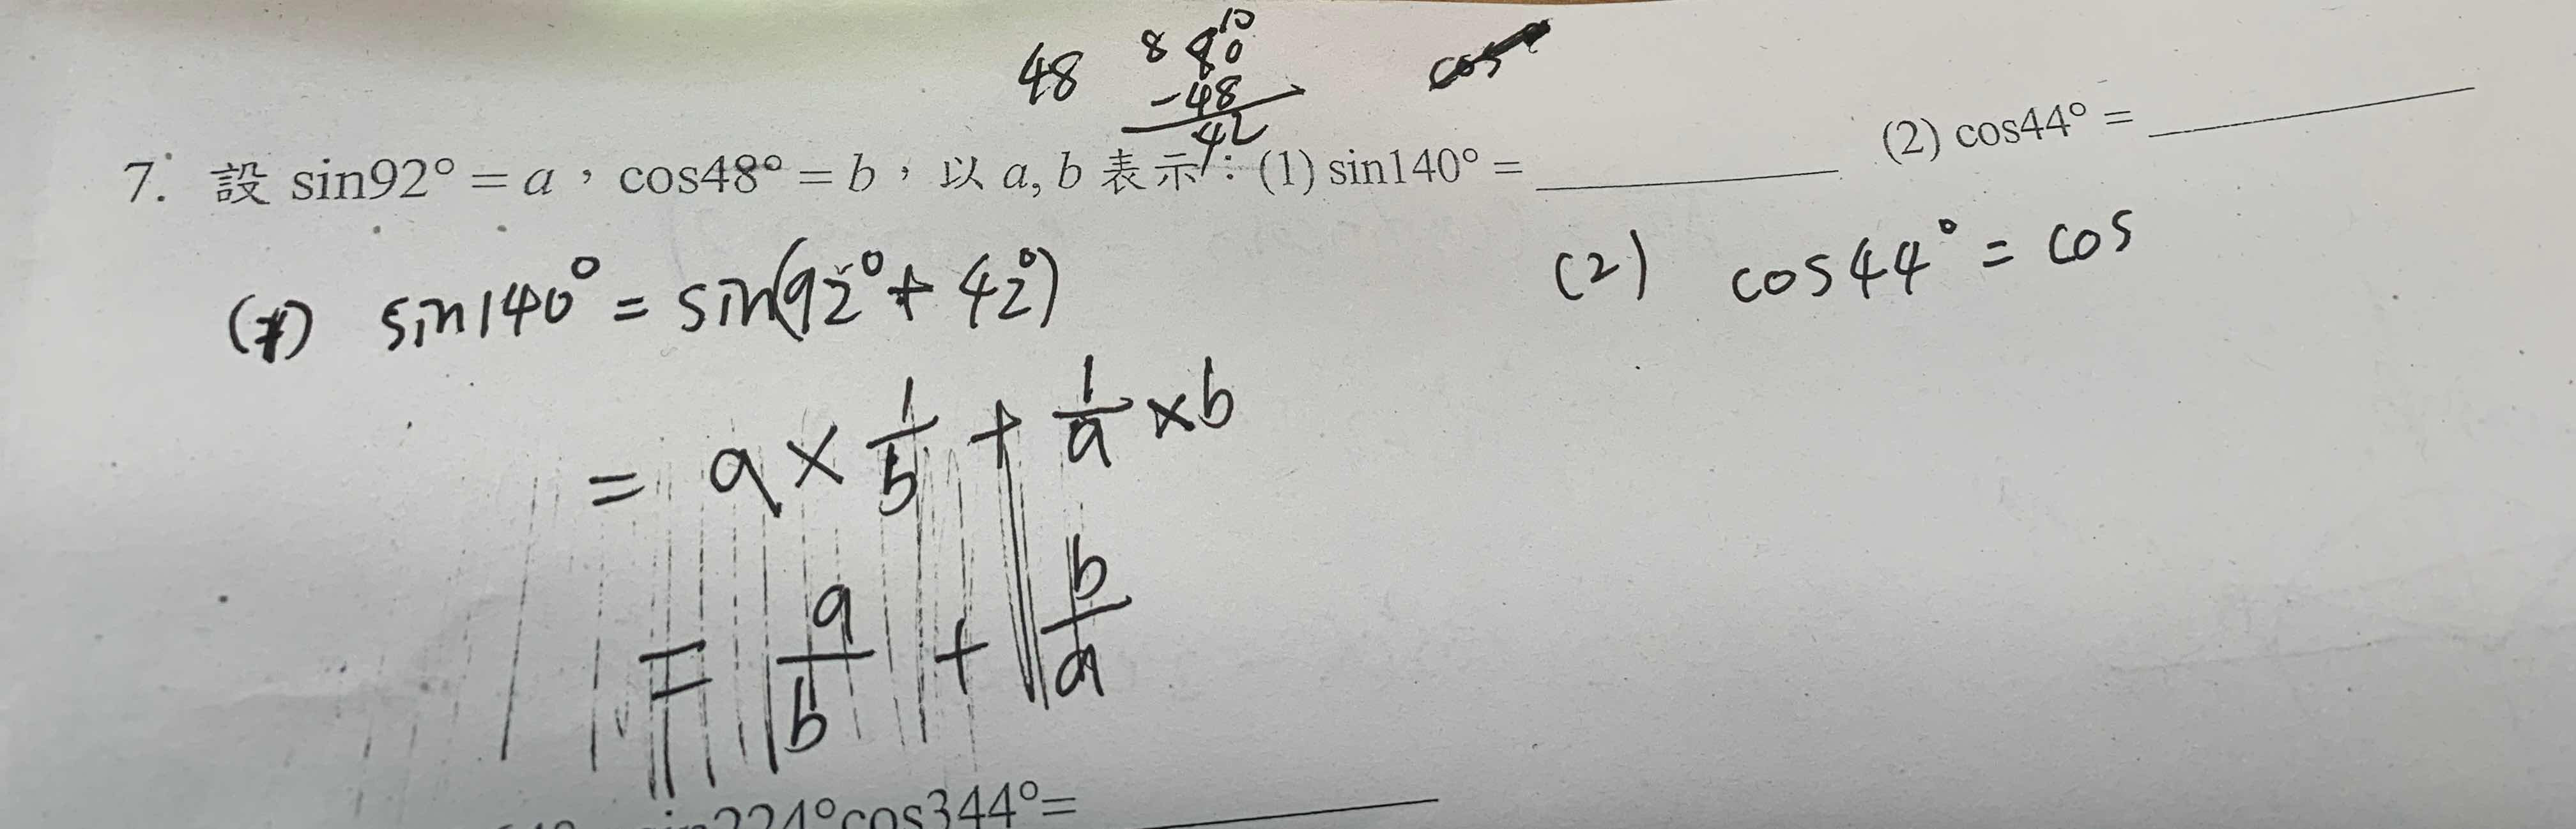 48
8 10
90
-48
42
7. 設 sin92° = a，cos48° = b，以 a, b 表示：(1) sin140° = ________ (2) cos44° = ________
(1) sin140° = sin(92° + 42°)
= a × 1/b + 1/a × b
= a/b + b/a
(2) cos44° = cos
cos344° = ________